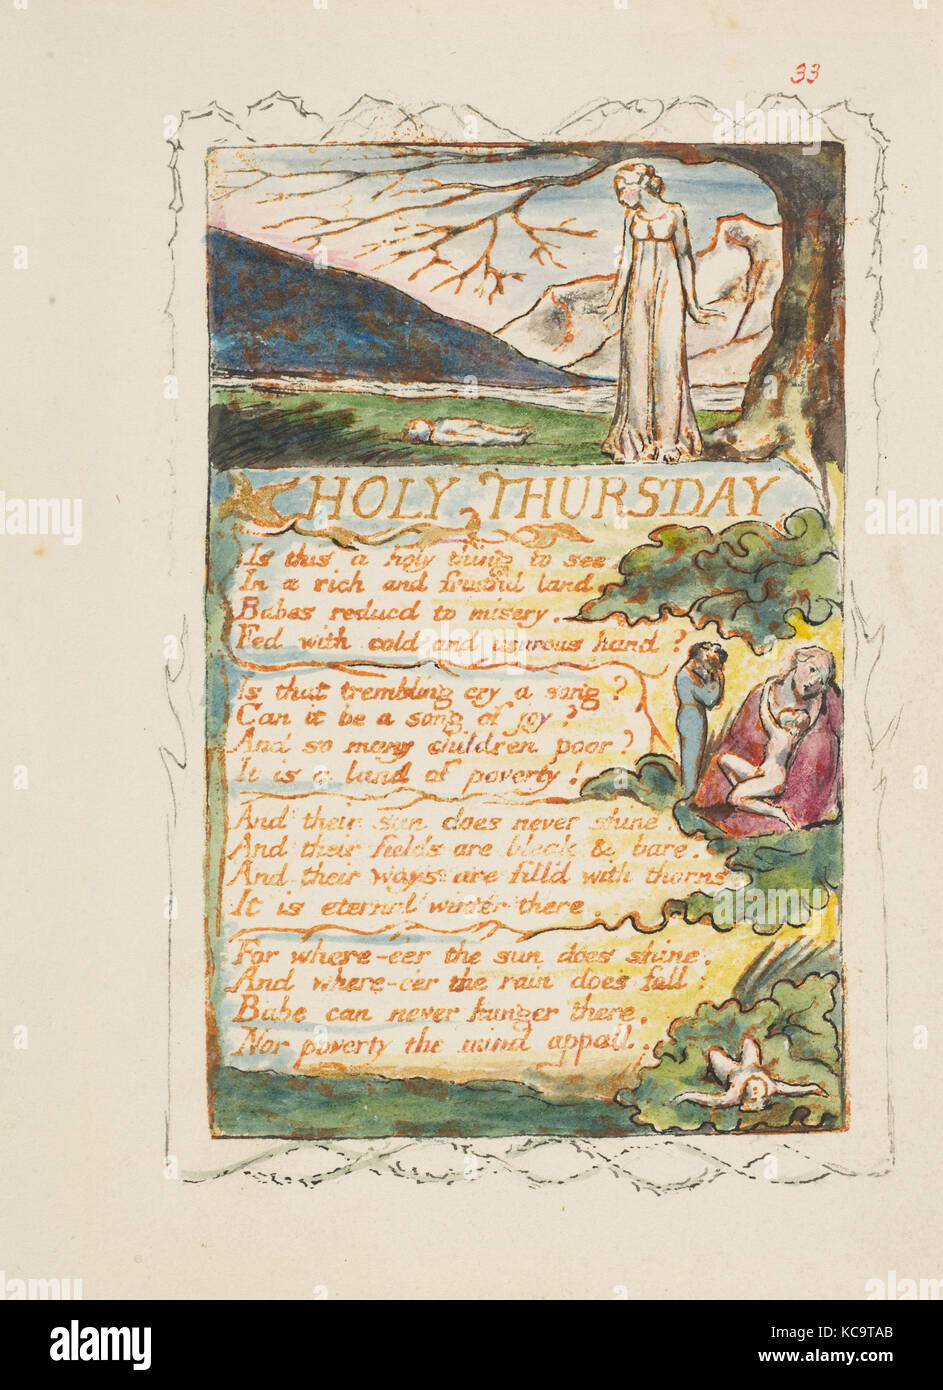 33
HOLY THURSDAY
Is this a holy thing to see
In a rich and fruitful land.
Babes reducd to misery.
Fed with cold and usurous hand?
Is that trembling cry a song?
Can it be a song of joy?
And so many children poor?
It is a land of poverty!
And their sun does never shine.
And their fields are bleak & bare.
And their ways are fill'd with thorns
It is eternal winter there.
For where-e'er the sun does shine.
And where-e'er the rain does fall:
Babe can never hunger there,
Nor poverty the mind appall.
alamy
a
alamy stock photo
KC9TAB
www.alamy.com